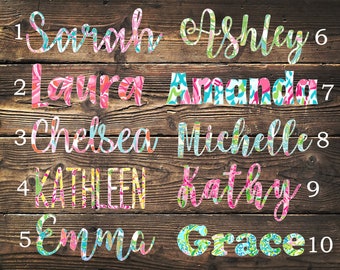 1 Sarah Ashley 6
2 Laura Amanda 7
3 Chelsea Michelle 8
4 KATHLEEN Kathy 9
5 Emma Grace 10